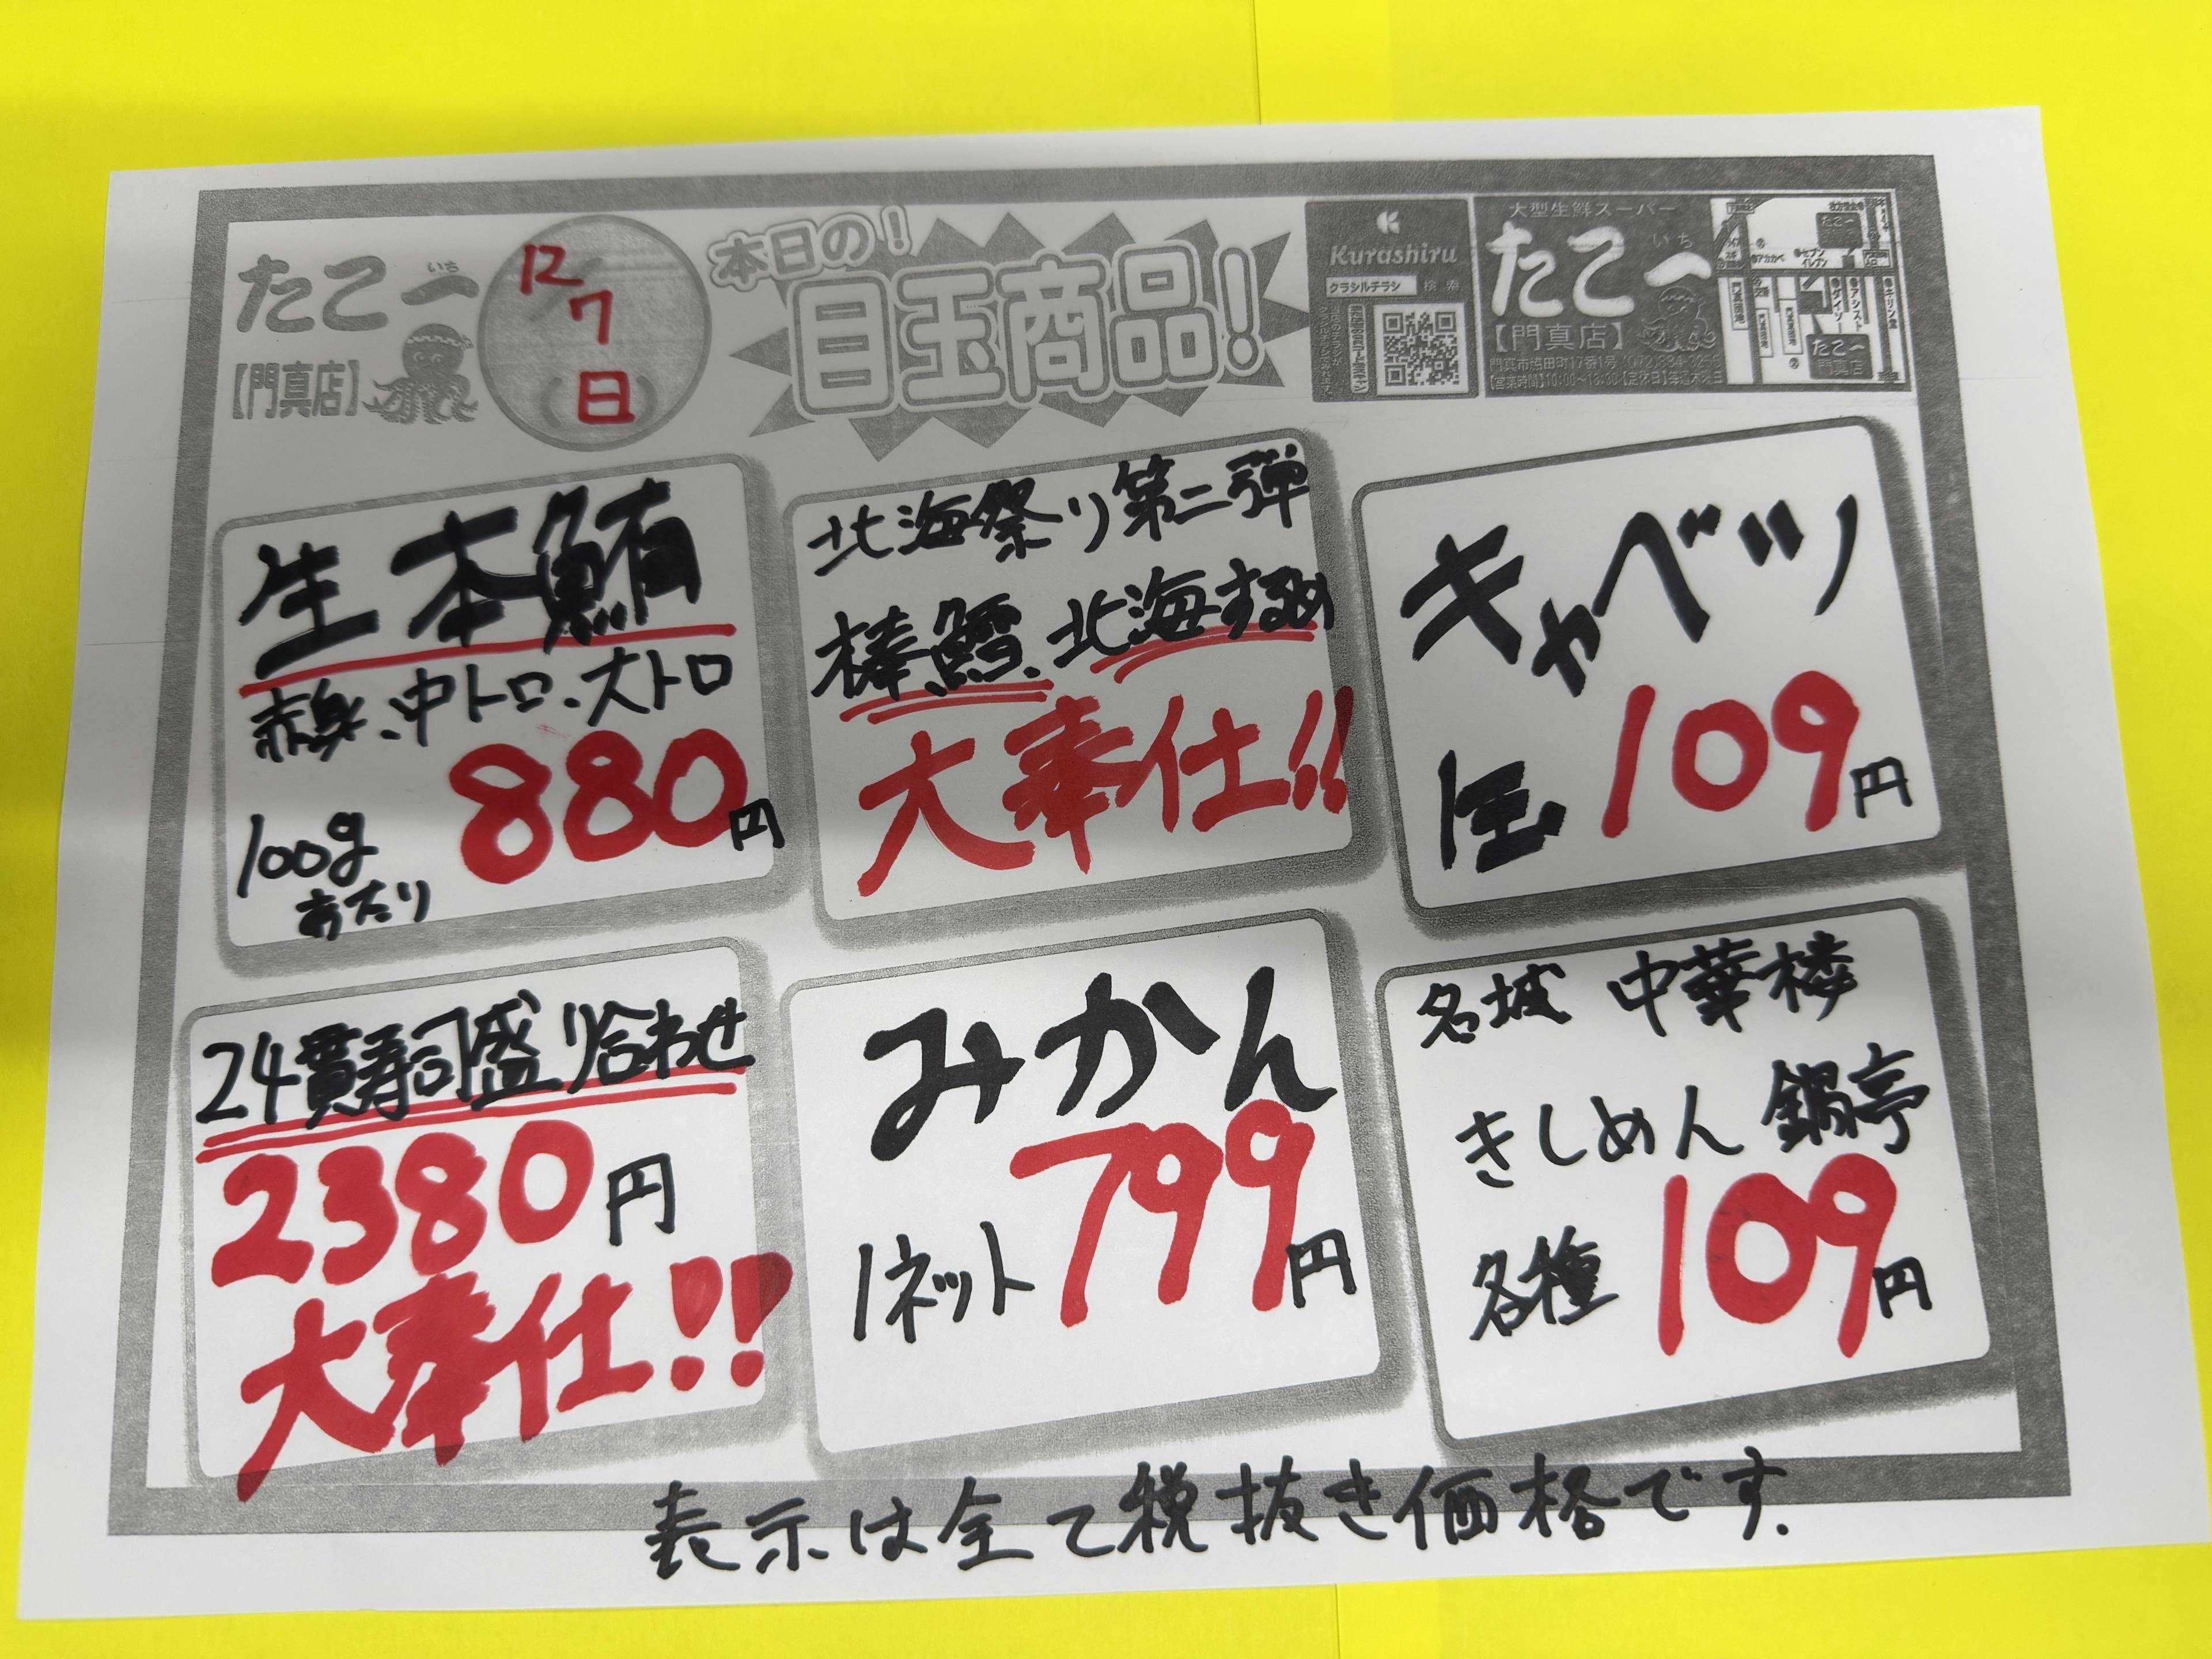 たこ一
いち
【門真店】
12/7
(日)
本日の!
目玉商品!
Kurashiru
クラシルチラシ 検索
大型生鮮スーパー
たこ一
いち
【門真店】
生本鮪
赤身、中トロ、大トロ
100g
あたり
880円
北海祭り第二弾
棒鱈、北海するめ
大奉仕!!
キャベツ
1玉 109円
24貫寿司盛り合わせ
2380円
大奉仕!!
みかん
1ネット 799円
名城 中華楼
きしめん 鍋亭
各種 109円
表示は全て税抜き価格です.